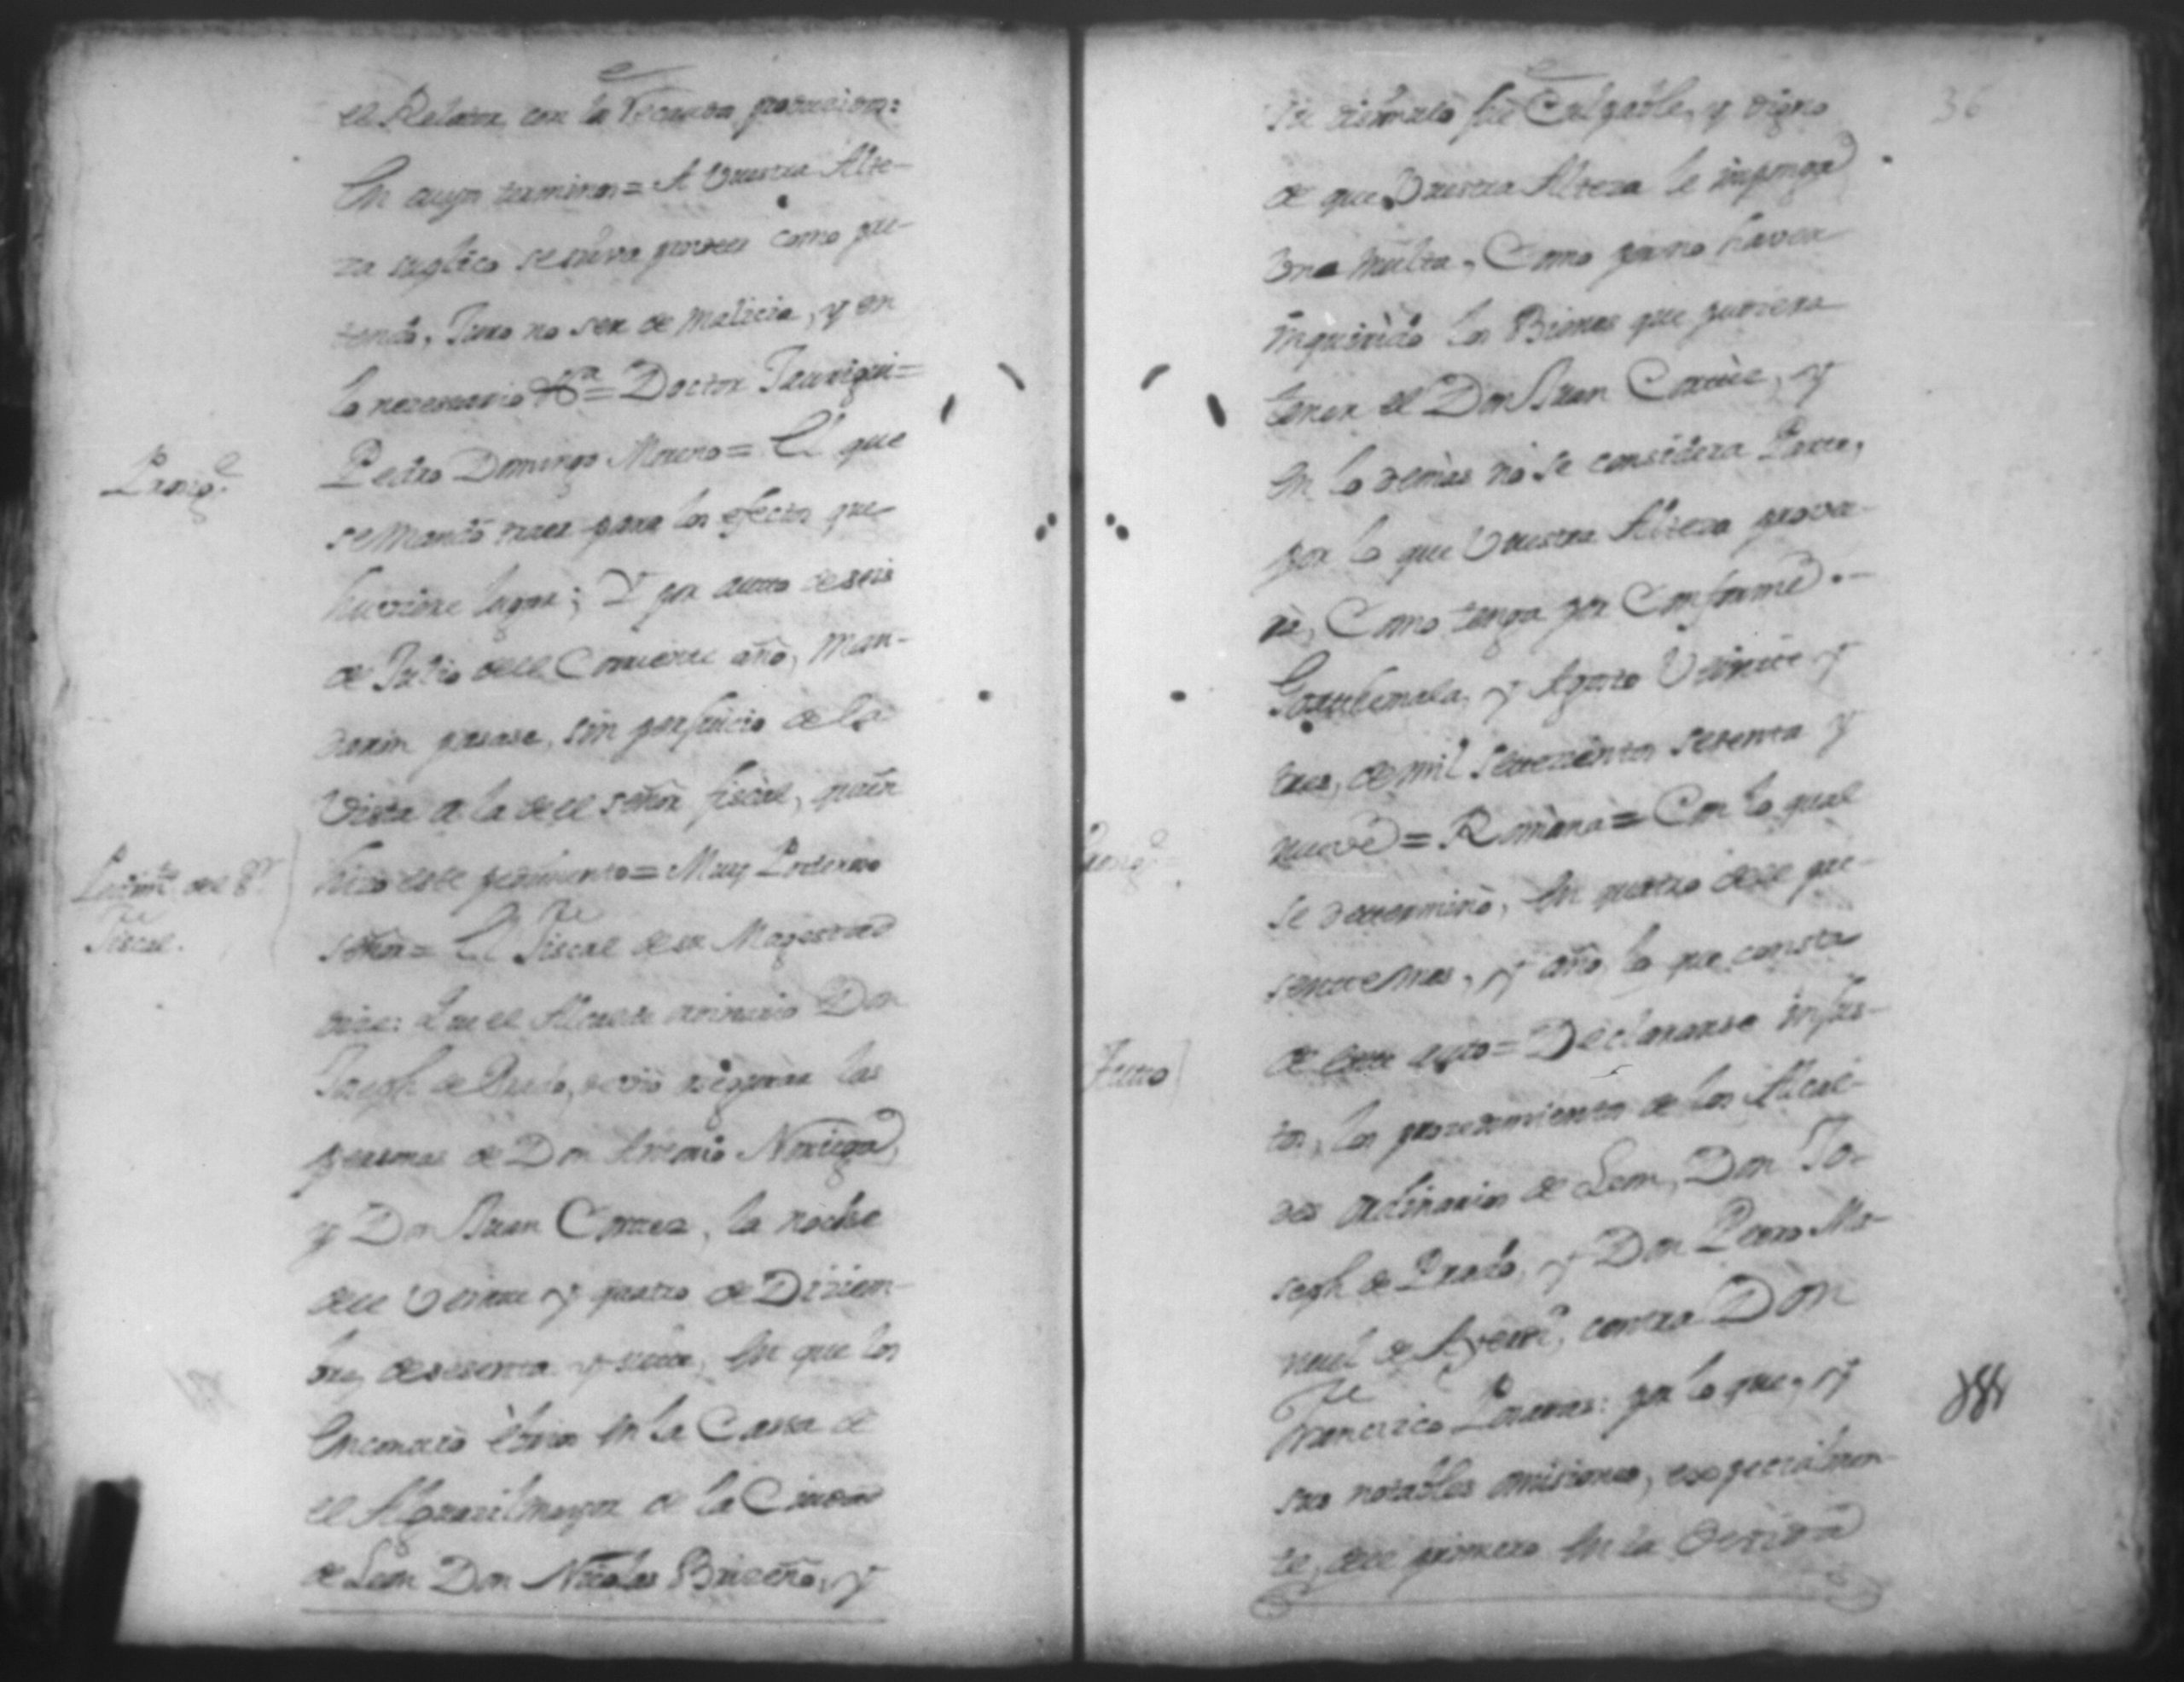 el Relator con la Segunda provicion:
En cuyos terminos = A Vuestra Alte-
za suplico se sirva proveer como pre-
tendo, Juro no ser de malicia, y en
lo necessario &ª = Doctor Jaurigui =
Prov.º
Pedro Domingo Moreno = El que
se mandó traer para los efectos que
huviere lugar; Y por autto de seis
de Julio de el Corriente año, man-
daron pasase, sin perjuicio de la
Vista a la de el señor fiscal, quien
Pedim.to del S.r
Fiscal.
hizo este pedimento = Muy Poderoso
señor = El Fiscal de su Magestad
dice: Que el Alcalde ordinario Don
Joseph de Prado, devió asegurar las
personas de Don Antonio Noriega,
y Don Juan Cortez, la noche
de el Veinte y quatro de Diziem-
bre, de sesenta y siette, en que los
Encontró ebrios en la Cassa de
el Alguazil mayor de la Ciudad
de Leon Don Nicolas Brizeño, y
36
su disimulo fue Culpable, y digno
de que Vuestra Alteza le imponga
Una Multa, Como por no haver
inquirido los Bienes que pudiera
tener el Don Juan Cortez, y
en lo demas no se considera Parte,
por lo que Vuestra Alteza provee-
rá, Como tenga por Conforme.—
Goathemala, y Agosto Veinte y
tres, de mil settezientos setenta y
Prov.º
nueve = Romana = Con lo qual
se determinó, en quatro de el pre-
sente mes, y año, lo que consta
Autto
de este auto = Declaranse injus-
tos, los procedimientos de los Alcal-
des ordinarios de Leon, Don Jo-
seph de Prado, y Don Pedro Ma-
nuel de Ayerdi, contra Don
Francisco Posadas: por lo que, y
sus notables omisiones, especialmen-
te, de el primero en la devida
388